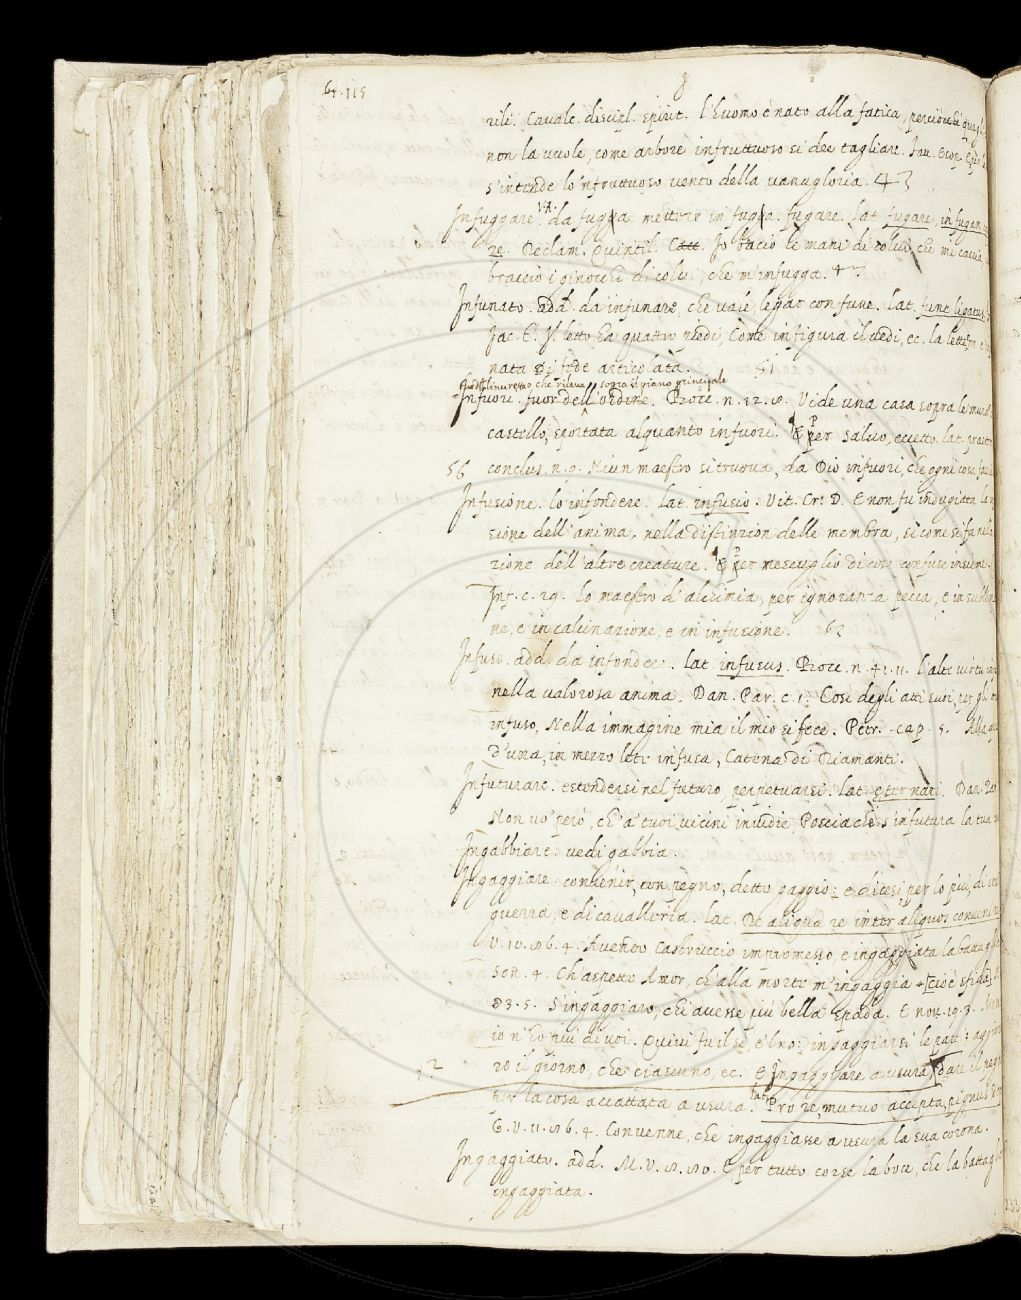 64.115
rili. Cavalc. discipl. spirit. l'huomo è nato alla fatica, percioché
non la vuole, come arbore infruttuoso si dee tagliare.
s'intende lo 'nfruttuoso vento della vanagloria.
Infuggare. da fugga mettere in fugga. fugare. lat. fugare, in fugam
re. Declam. Quintil. Io faciò le mani di colui, che mi caccia,
braccio i ginocchi di colui, che m'infugga.
Infunato. add. da infunare, che vale, legar con fune. lat. fune ligatus.
Il letto ha quattro piedi, Come in figura il vedi, ec. la letter
nata Di fede articolata. 51
che rileva sopra il piano principale
Infuori. fuor dell'ordine. Bocc. n. 12. 8. Vide una casa sopra le mura
castello, sportata alquanto infuori. E per salvo, eccetto. lat. praeter
56 conclus. n. 9. Niun maestro si truova, da Dio infuori, che ogni cosa
Infusione. lo infondere. lat. infusio. Vit. Cr. D. E non fu indugiata la
sione dell'anima, nella distinzion delle membra, sì come si fa nella
zione dell'altre creature. E per mescuglio di cose confuse insieme.
Inf. c. 29. lo maestro d'alchimia, per ignoranza pecca, e in
ne, e in calcinazione, e in infusione. 62
Infuso. add. da infondere. lat. infusus. Bocc. n. 41. 11. l'alte virtù
nella valorosa anima. Dan. Par. c. 1. Così degli atti suoi, per gli
infuso, Nella immagine mia il mio si fece. Petr. cap. 5.
D'una, in mezzo lete infusa, Catena di Diamanti.
Infuturare. estendersi nel futuro, perpetuarsi. lat. eternari. Dan. Par.
Non vo' però, ch'a' tuoi vicini invidie, Posciachè s'infutura la tua
Ingabbiare. vedi gabbia.
Ingaggiare. convenir, con pegno, detto gaggio: e dicesi per lo più, di
guerra, e di cavalleria. lat. De aliqua re inter aliquos convenire
V. 10. 86. 4. Avendo Castruccio impromesso, e ingaggiata la battaglia
son. 4. Ch'aspetto Amor, ch'alla morte m'ingaggia [cioè sfida]
83. 5. S'ingaggiaro, chi avesse più bella spada. E nov. 19. 3.
io n'ho più di voi. Quivi fu il sì, e 'l no: ingaggiarsi le parti:
72 ro il giorno, che ciascuno, ec. E Ingaggiare a usura, dare il pegno
per la cosa accattata a usura. lat. Pro re, mutuo accepta, pignus
G. V. 11. 86. 4. Convenne, che ingaggiasse a usura la sua corona.
Ingaggiato. add. M. V. 8. 80. E per tutto corse la boce, che la battaglia
ingaggiata.